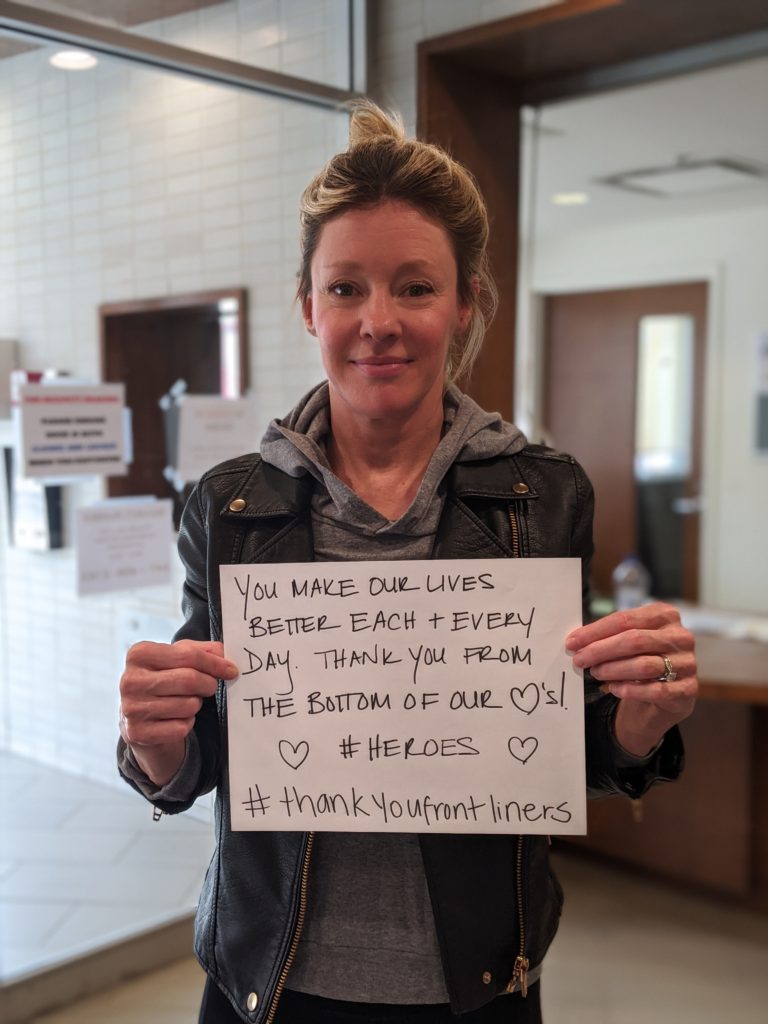 YOU MAKE OUR LIVES
BETTER EACH + EVERY
DAY. THANK YOU FROM
THE BOTTOM OF OUR ♡'s!
♡ #HEROES ♡
#thankyoufrontliners